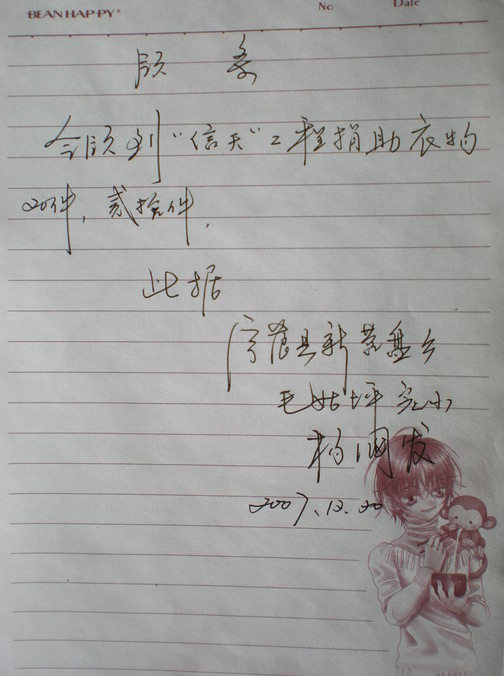 BEANHAPPY®
No Date
领 条
今领到“信天”工程捐助衣物
20件，贰拾件．
此据
宁蒗县新营盘乡
毛姑坪完小
杨润发
2007.12.20